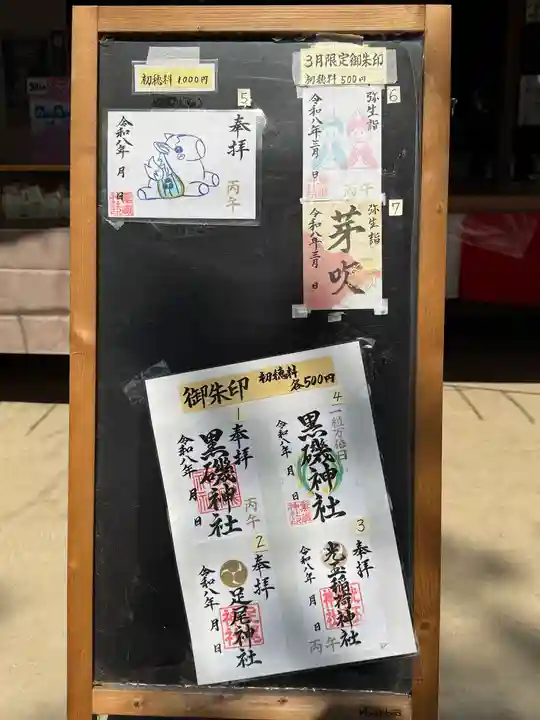 初穂料 1000円
5
奉拝
丙午
令和八年 月 日
3月限定御朱印
初穂料 500円
6
弥生詣
丙午
令和八年三月 日
7
弥生詣
芽吹
令和八年三月 日
御朱印 初穂料 各500円
1
奉拝
黒磯神社
丙午
令和八年 月 日
4
一粒万倍日
黒磯神社
令和八年 月 日
2
奉拝
足尾神社
令和八年 月 日
3
奉拝
稲荷神社
丙午
令和八年 月 日